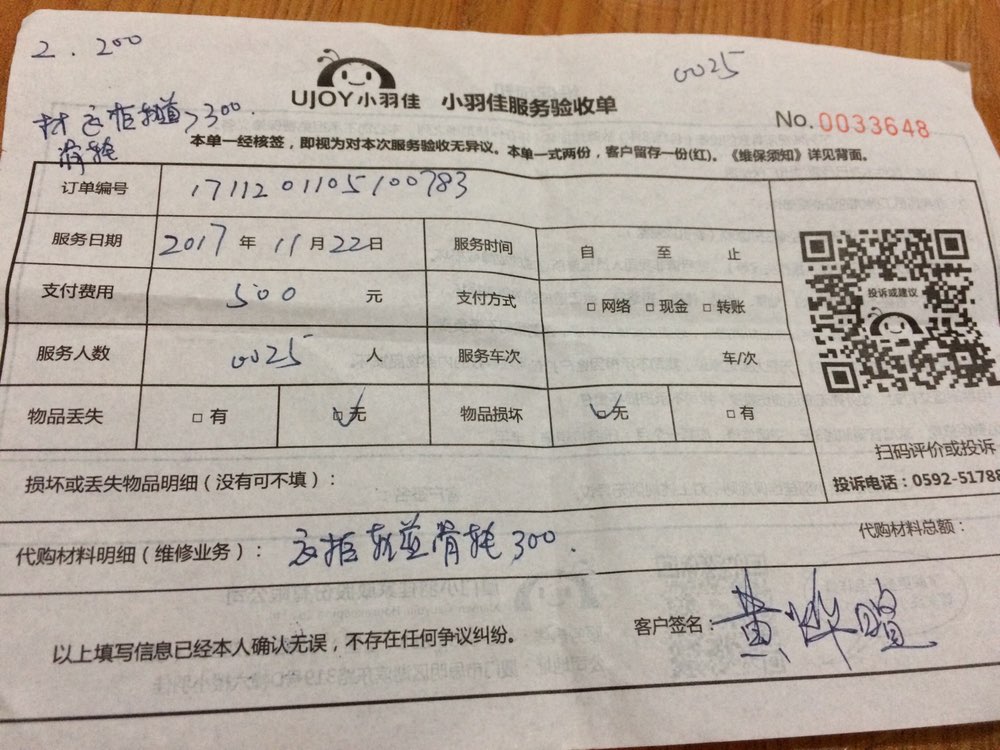 2.200
0025
UJOY小羽佳 小羽佳服务验收单
No.0033648
300
本单一经核签，即视为对本次服务验收无异议。本单一式两份，客户留存一份(红)。《维保须知》详见背面。
订单编号 1711201105100783
服务日期 2017 年 11 月 22 日 服务时间 自 至 止
投诉或建议
支付费用 500 元 支付方式 □ 网络 □ 现金 □ 转账
服务人数 0025 人 服务车次 车/次
物品丢失 □ 有 □ 无 物品损坏 □ 无 □ 有
扫码评价或投诉
损坏或丢失物品明细（没有可不填）：
投诉电话：0592-51788
代购材料明细（维修业务）： 300.
代购材料总额：
以上填写信息已经本人确认无误，不存在任何争议纠纷。
客户签名：